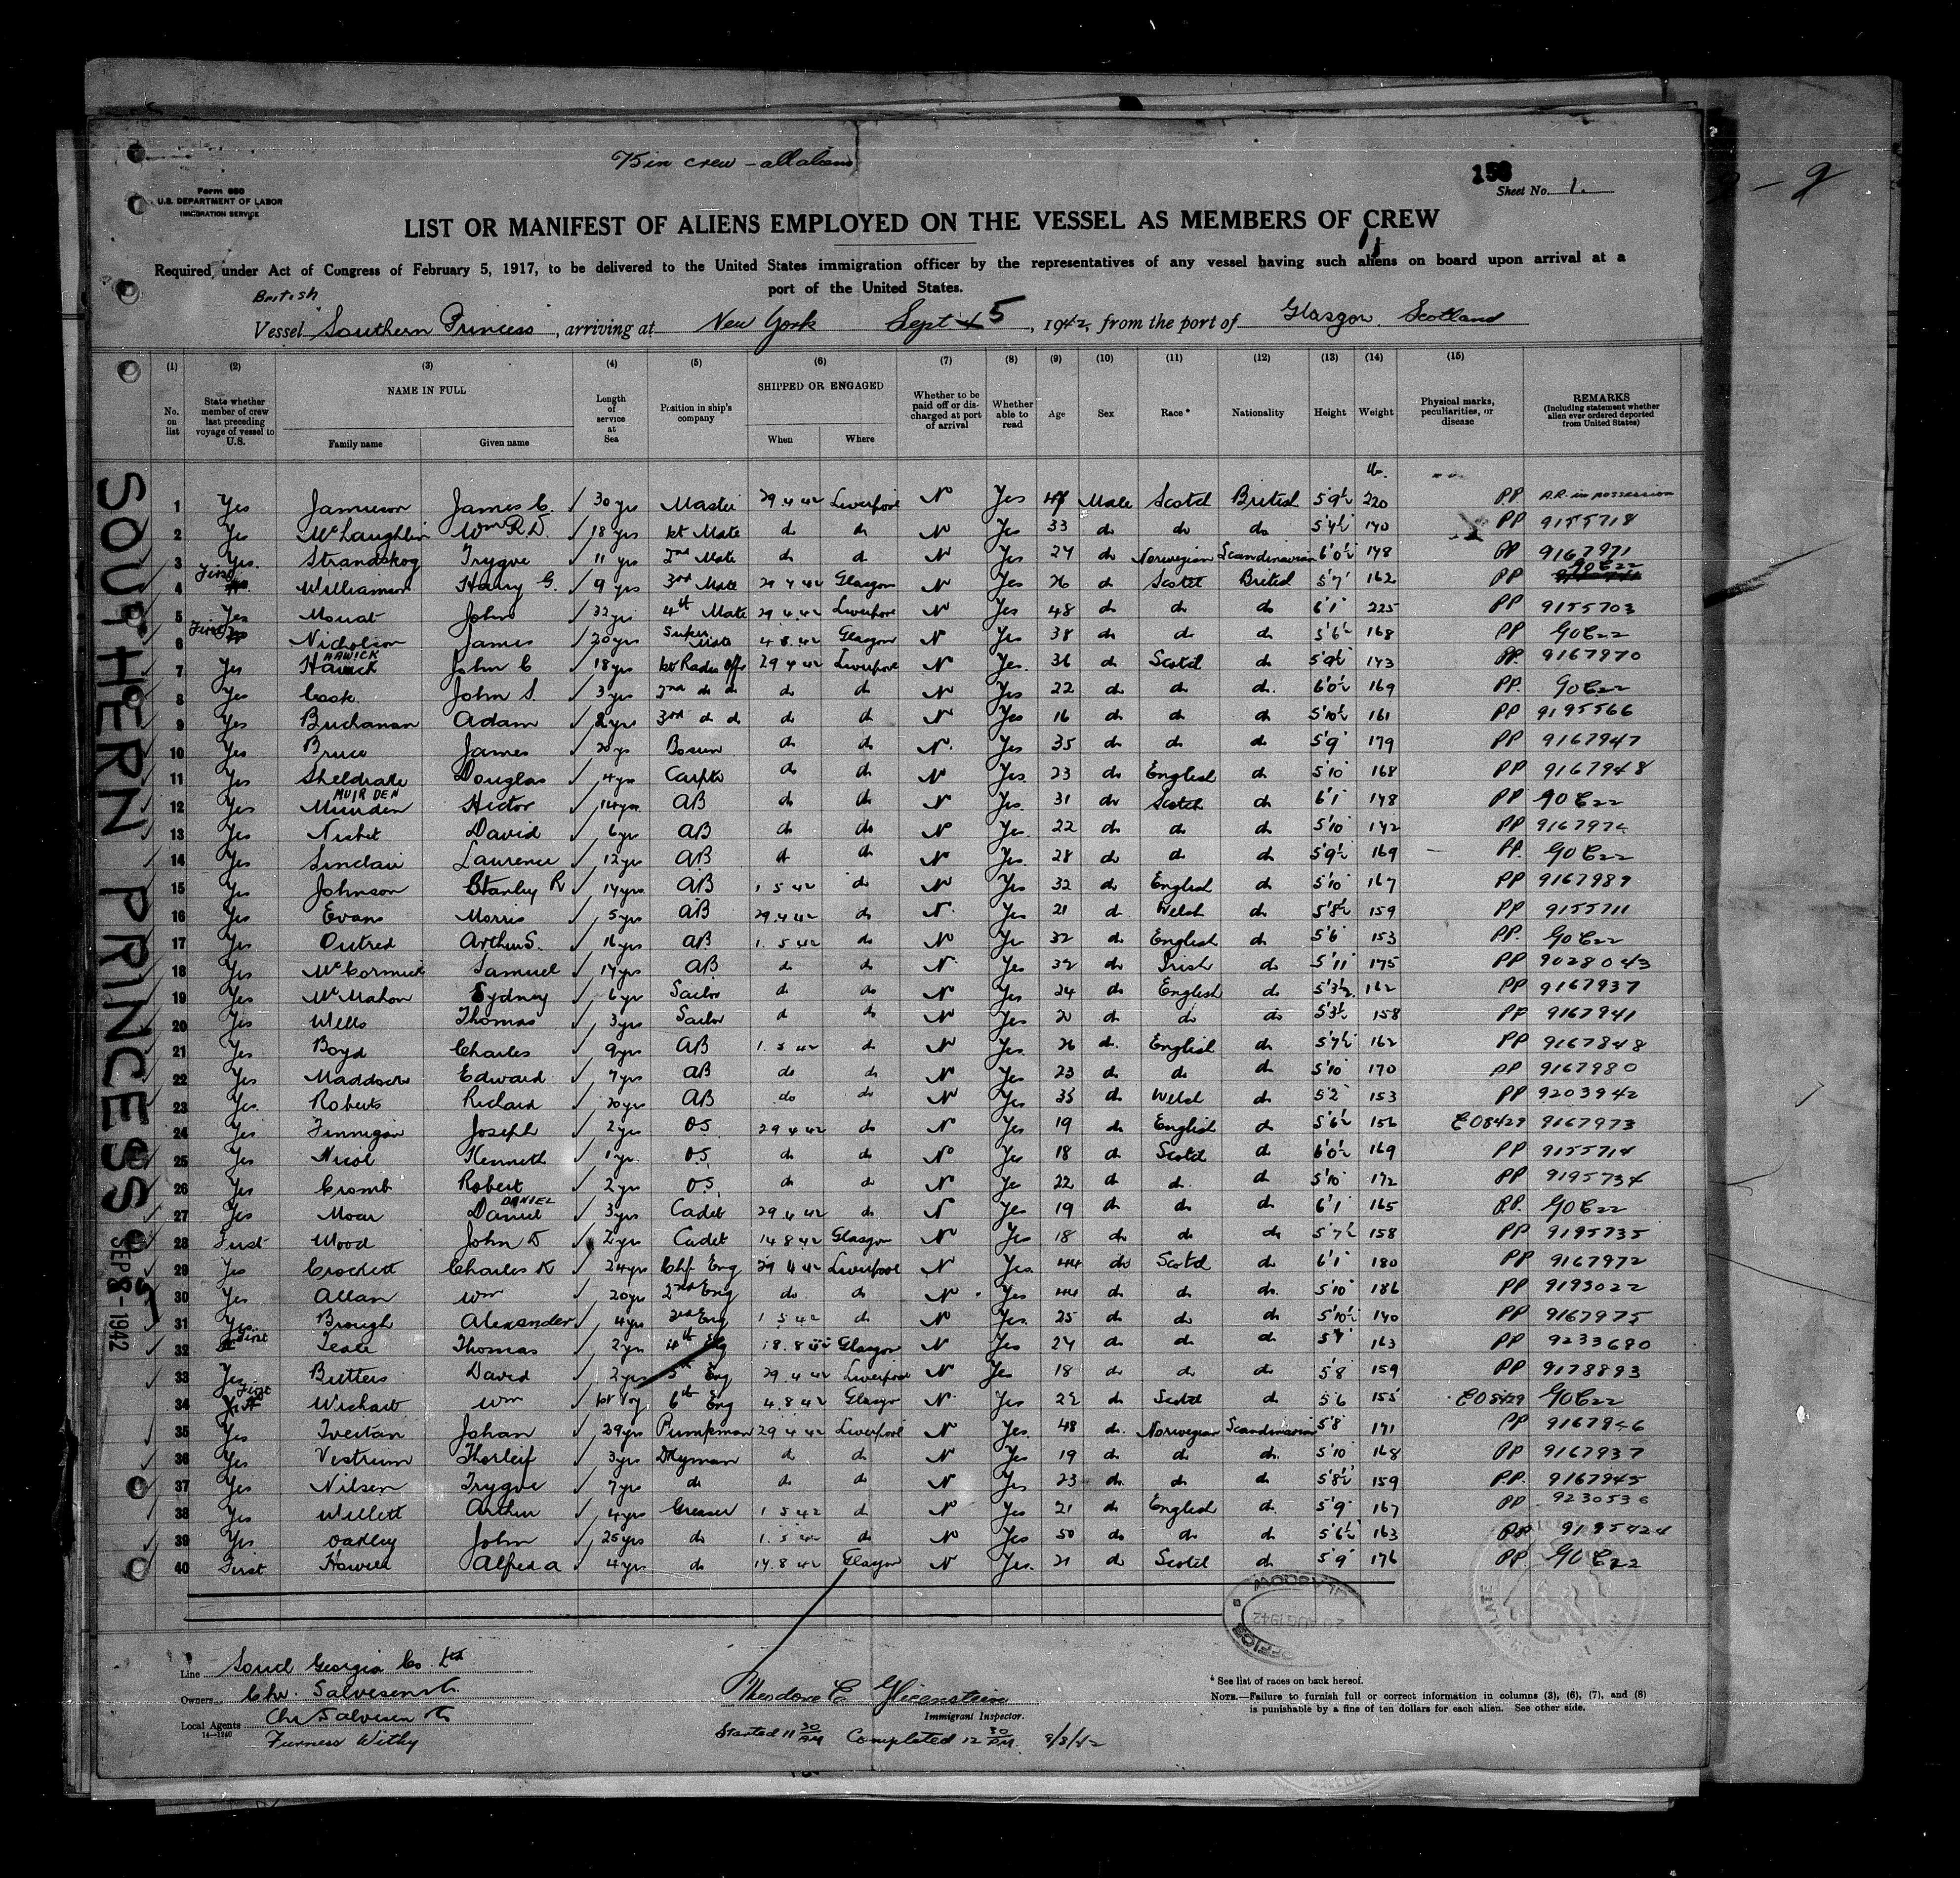 75 in crew - all aliens
158
Form 680
U.S. DEPARTMENT OF LABOR
IMMIGRATION SERVICE
Sheet No. 1.
LIST OR MANIFEST OF ALIENS EMPLOYED ON THE VESSEL AS MEMBERS OF CREW
Required under Act of Congress of February 5, 1917, to be delivered to the United States immigration officer by the representatives of any vessel having such aliens on board upon arrival at a
port of the United States.
British
Vessel "Southern Princess, arriving at New York Sept 5, 1942, from the port of Glasgow Scotland
(1) (2) (3) (4) (5) (6) (7) (8) (9) (10) (11) (12) (13) (14) (15)
No. on list State whether member of crew last preceding voyage of vessel to U.S. NAME IN FULL Family name Given name Length of service at Sea Position in ship's company SHIPPED OR ENGAGED When Where Whether to be paid off or discharged at port of arrival Whether able to read Age Sex Race* Nationality Height Weight Physical marks, peculiarities, or disease REMARKS (Including statement whether alien ever ordered deported from United States)
1 Yes Jamieson James C. 30 yrs Master 29.4.42 Liverpool N Yes Male Scotch British 5'9½ 220 PP A.R. in possession
2 Yes McLaughlin Wm R.D. 18 yrs 1st Mate do do N Yes 33 do do do 5'4½ 140 PP 9155718
3 Yes. Strandskog Trygve 11 yrs 2nd Mate do do N Yes 24 do Norwegian Scandinavian 6'0½ 148 PP 9167971
4 First Williamson Harry G. 9 yrs 3rd Mate 29 4 42 Glasgow N Yes 26 do Scotch British 5'7" 162 PP
5 Yes Mouat John 32 yrs 4th Mate 29.4.42 Liverpool N Yes 48 do do do 6'1 225 PP 9155703
6 First Nicholson James 20 yrs Super Mate 4.8.42 Glasgow N Yes 38 do do do 5'6½ 168 PP
7 Yes HAWICK John C 18 yrs 1st Radio Offr 29 4 42 Liverpool N Yes. 36 do Scotch do 5'9½ 143 PP. 9167970
8 Yes Cook. John S. 3 yrs 2nd do do do do N Yes 22 do do do. 6'0½ 169 PP.
9 Yes Buchanan Adam 2 yrs 3rd do do do do N Yes 16 do do do 5'10½ 161 PP 9195566
10 Yes Bruce James 20 yrs Bosun do do N. Yes 35 do do do 5'9" 179 PP 9167947
11 Yes Sheldrake Douglas 4 yrs Carptr do do N Yes. 23 do English do 5'10 168 PP 9167948
12 Yes MUIRDEN Hector 14 yrs AB do do N Yes. 31 do Scotch do 6'1 148 PP
13 Yes Nisbet David 6 yrs AB do do N Yes. 22 do do do 5'10 142 PP
14 Yes Sinclair Laurence 12 yrs AB do do N Yes. 28 do do do 5'9½ 169 PP.
15 Yes Johnson Stanley R 14 yrs AB 1 5 42 do N Yes 32 do English do 5'10 167 PP 9167989
16 Yes Evans Morris 5 yrs AB 29.4.42 do N. Yes 21 do Welsh do 5'8½ 159 PP 9155711
17 Yes Outred Arthur S. 16 yrs AB 1. 5 42 do N Yes 32 do English do 5'6 153 PP.
18 Yes McCormick Samuel 14 yrs AB do do N Yes 32 do Irish do 5'11" 175 PP 9028043
19 Yes McMahon Sydney 6 yrs Sailor do do N Yes 24 do English do 5'3½ 162 PP 9167937
20 Yes Wells Thomas 3 yrs Sailor do do N Yes 20 do do do 5'3½ 158 PP 9167941
21 Yes Boyd Charles 9 yrs AB 1. 5 42 do N Yes. 26 do. English do 5'7½ 162 PP 9167848
22 Yes Maddock Edward 7 yrs AB do do N Yes 23 do do do 5'10 170 PP 9167980
23 Yes. Roberts Richard 20 yrs AB do do N Yes 35 do Welsh do 5'2" 153 PP 9203942
24 Yes Finnigan Joseph 2 yrs OS 29 4 42 do N Yes 19 do English do 5'6½ 156 E08429 9167973
25 Yes Nicol Kenneth 1 yr. O.S. do do N Yes 18 do Scotch do 6'0½ 169 PP 9155714
26 Yes Cromb Robert 2 yr O.S. do do N Yes 22 do do. do 5'10 172 PP 9195734
27 Yes Moar DANIEL 3 yrs Cadet 29.4.42 do N Yes 19 do do do 6'1 165 PP.
28 First Wood John D 2 yrs Cadet 14 8 42 Glasgow N Yes 18 do do do 5'7½ 158 PP 9195735
29 Yes Crockett Charles K 24 yrs Chf Eng 29 4 42 Liverpool N Yes. 44 do Scotch do 6'1 180 PP 9167972
30 Yes Allan Wm 20 yrs 2nd Eng do do N Yes 44 do do do. 5'10 186 PP 9193022
31 Yes. Brough Alexander 4 yrs 3rd Eng 1 5 42 do N Yes. 25 do do do 5'10½ 140 PP 9167975
32 First Teale Thomas 2 yrs 4th Eng 18.8.42 Glasgow N Yes 24 do do do 163 PP 9233680
33 Yes Butters David 2 yrs 5th Eng 29.4.42 Liverpool N Yes 18 do do do 5'8 159 PP 9178893
34 First Wishart Wm 1st Voy 6th Eng 4.8.42 Glasgow N. Yes 22 do Scotch do 5'6 155 E08429
35 Yes Tveitan Johan 29 yrs Pumpman 29 4 42 Liverpool N Yes. 48 do. Norwegian Scandinavian 5'8 171 PP 9167946
36 Yes Vestrum Thorleif 3 yrs Dkyman do do N Yes 19 do do do. 5'10 168 PP 9167937
37 Yes Nilsen Trygve 7 yrs do do do N Yes 23 do. do do 5'8½ 159 PP. 9167945
38 Yes Willett Arthur 4 yrs Greaser 1 5 42 do N Yes 21 do English do. 5'9" 167 PP 9230536
39 Yes Oakley John 25 yrs do 1. 5 42 do N Yes 50 do do do 5'6½ 163 PP 9195424
40 First Alfred A 4 yrs do 14.8.42 Glasgow N Yes. 21 do Scotch do 5'9" 176 PP
SOUTHERN PRINCESS
SEP 8 - 1942
GLASGOW
AUG 1942
OFFICE
Line South Georgia Co. Ltd
Owners Chr. Salvesen & Co.
Local Agents Chr Salvesen & Co
14-1240
Furness Withy
Theodore C. Glicenstein
Immigrant Inspector.
Started 11 30 AM Completed 12 30 P.M. 9/8/42
* See list of races on back hereof.
NOTE.—Failure to furnish full or correct information in columns (3), (6), (7), and (8)
is punishable by a fine of ten dollars for each alien. See other side.